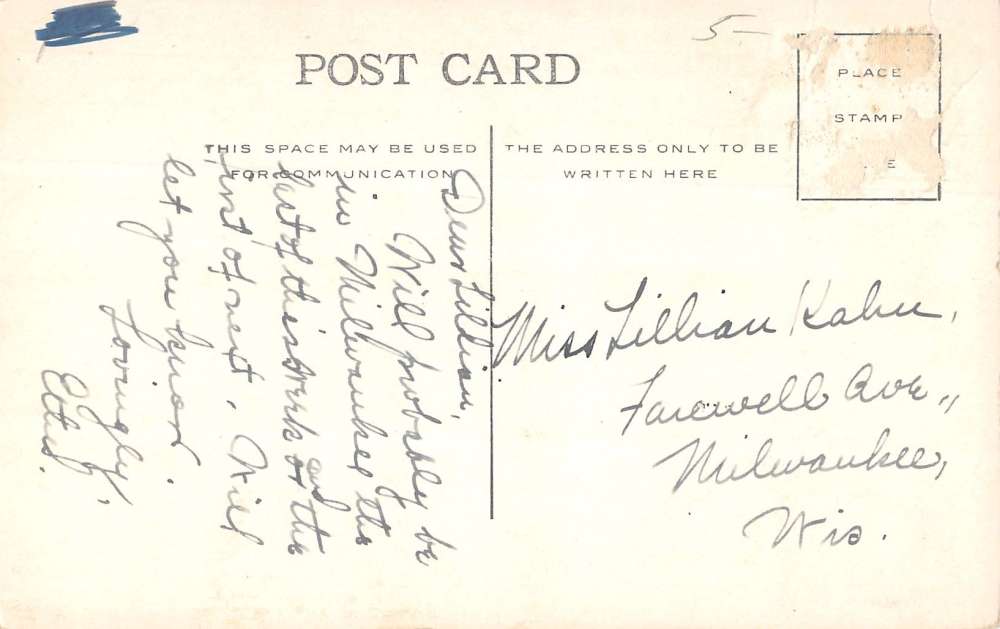 5-
POST CARD
PLACE
STAMP
THIS SPACE MAY BE USED
FOR COMMUNICATION
THE ADDRESS ONLY TO BE
WRITTEN HERE
Dear Lillian,
Will probably be
in Milwaukee the
last of this week or the
and
first of next. Will
let you know.
Lovingly,
Ethel.
Miss Lillian Kahn,
Farewell Ave.,
Milwaukee,
Wis.